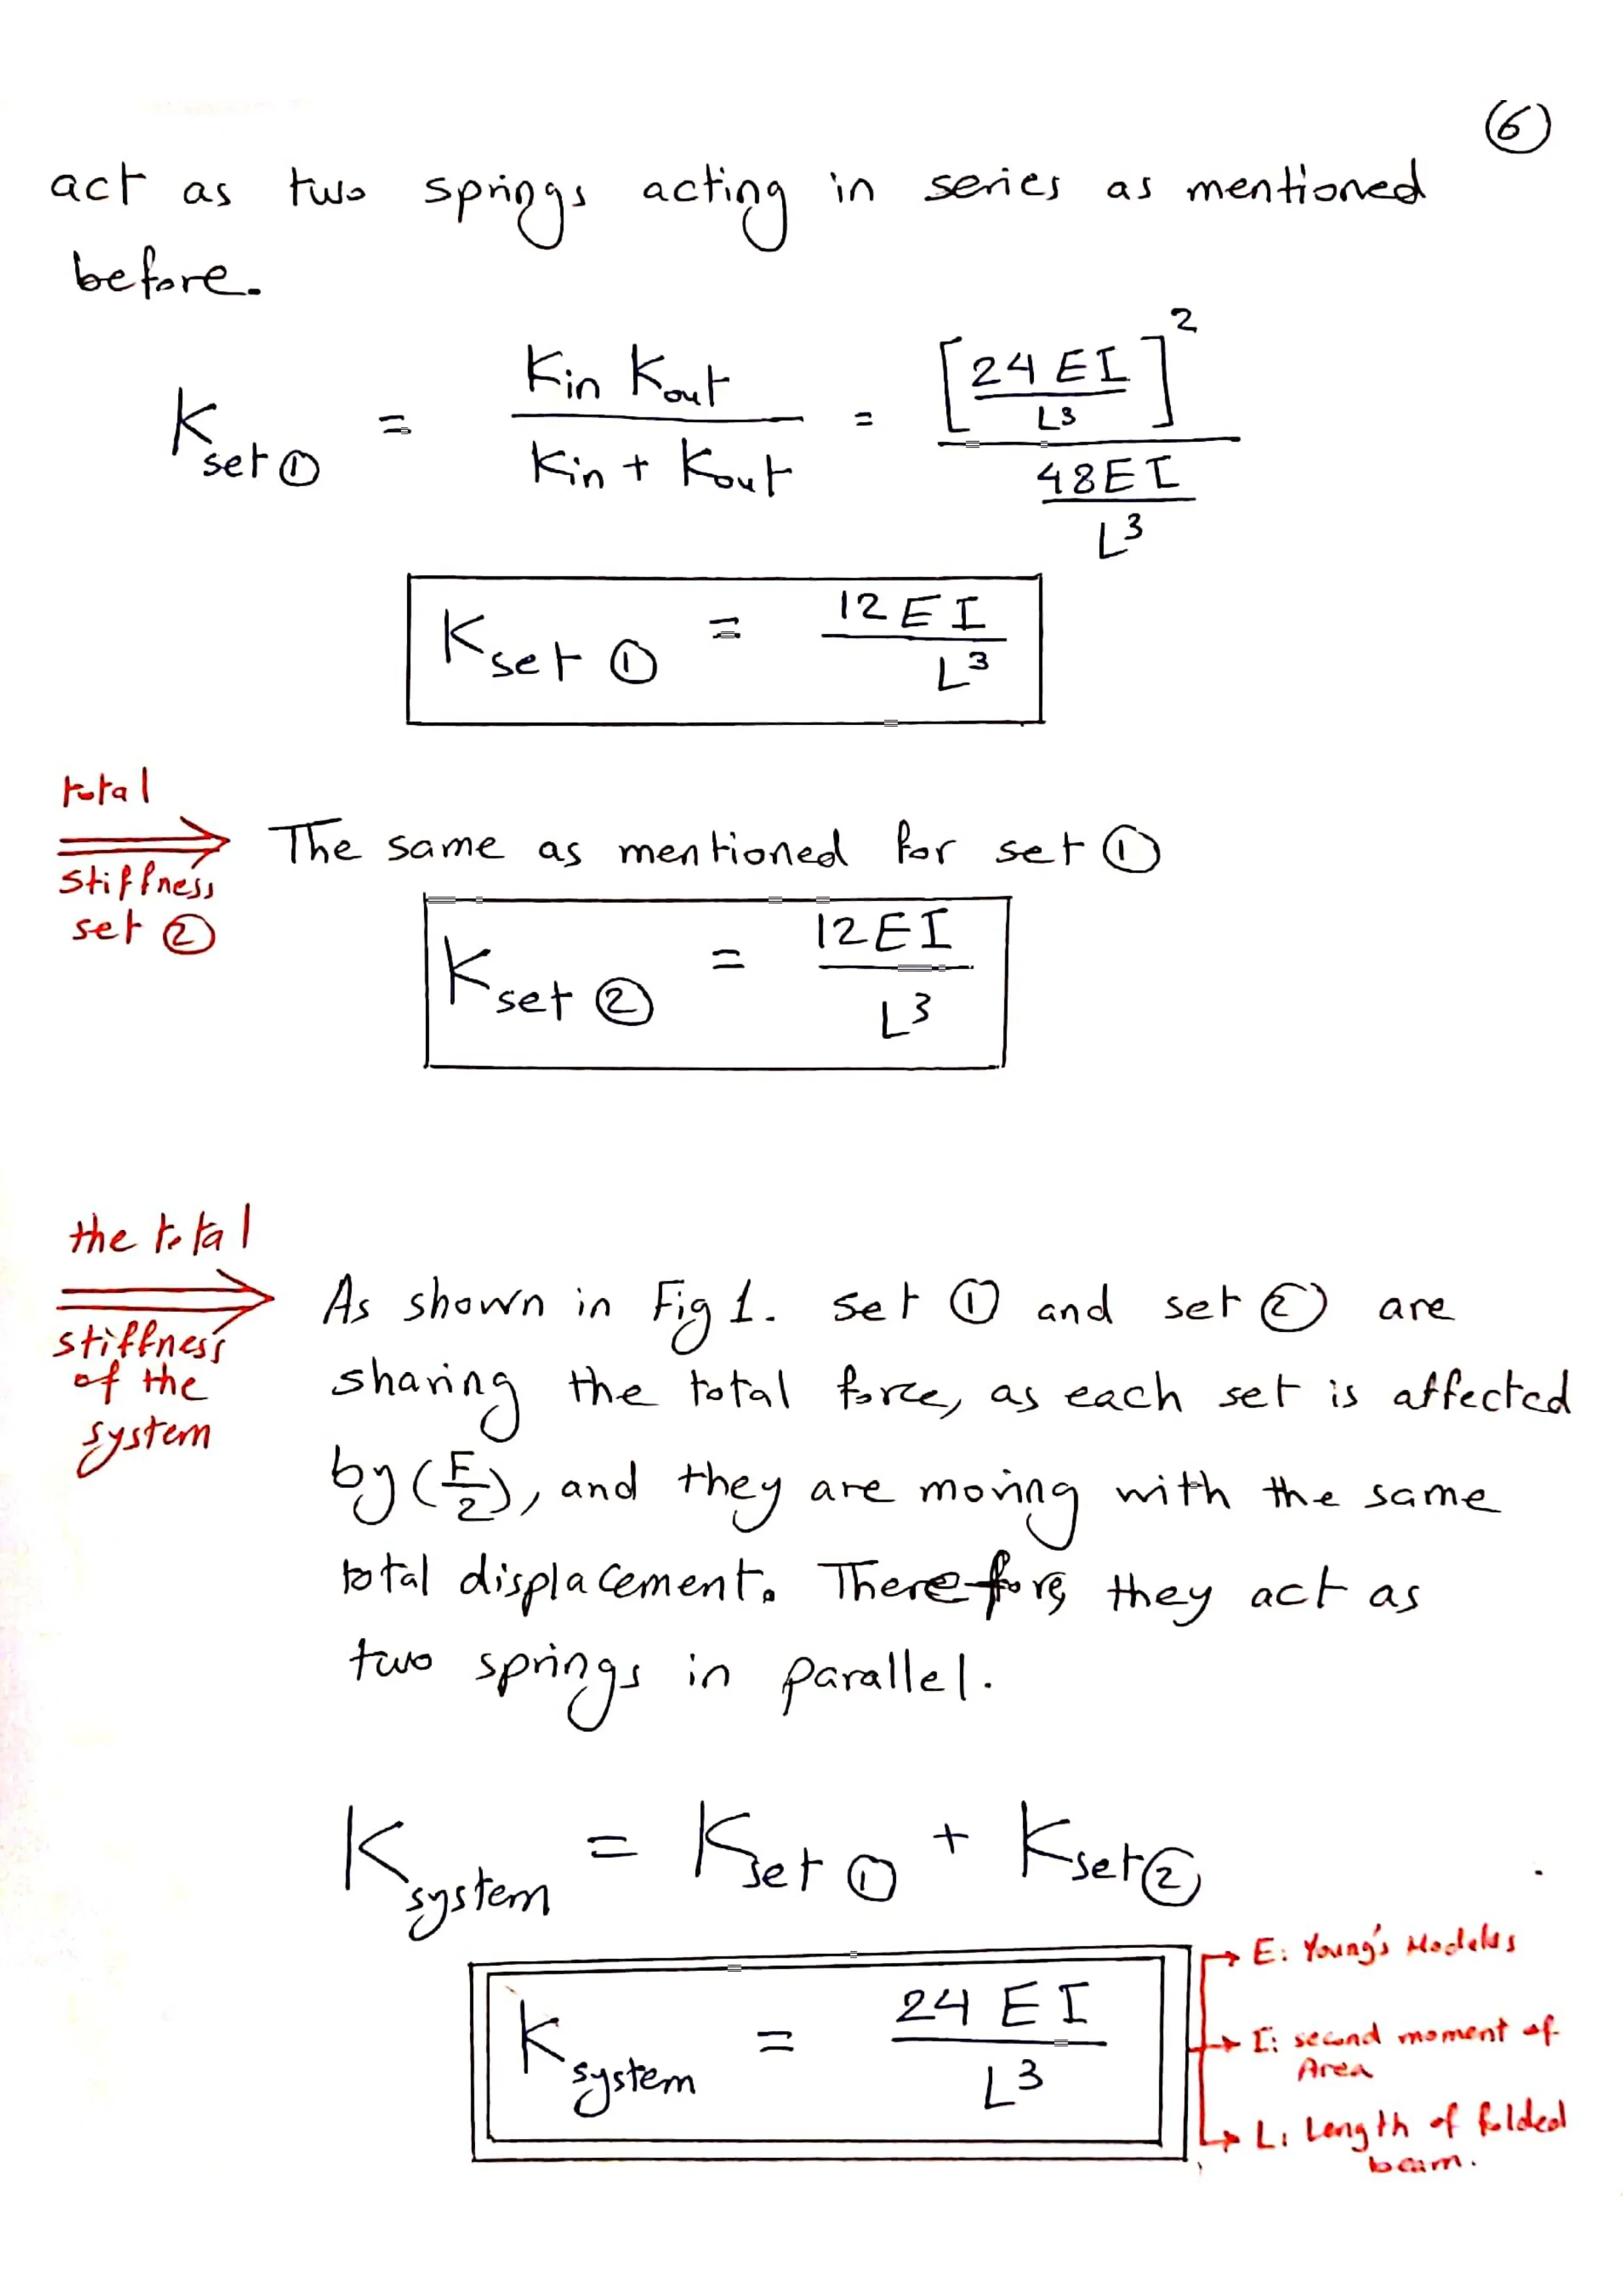 ⑥
act as two springs acting in series as mentioned
before.
K_set① = (Kin Kout) / (Kin + Kout) = [24 EI / L³]² / (48EI / L³)
K_set① = 12EI / L³
total
stiffness
set ②
The same as mentioned for set ①
K_set② = 12EI / L³
the total
stiffness
of the
system
As shown in Fig 1. set ① and set ② are
sharing the total force, as each set is affected
by (F/2), and they are moving with the same
total displacement. Therefore, they act as
two springs in parallel.
K_system = K_set① + K_set②
K_system = 24 EI / L³
E: Young's Modulus
I: second moment of
Area
L: Length of folded
beam.